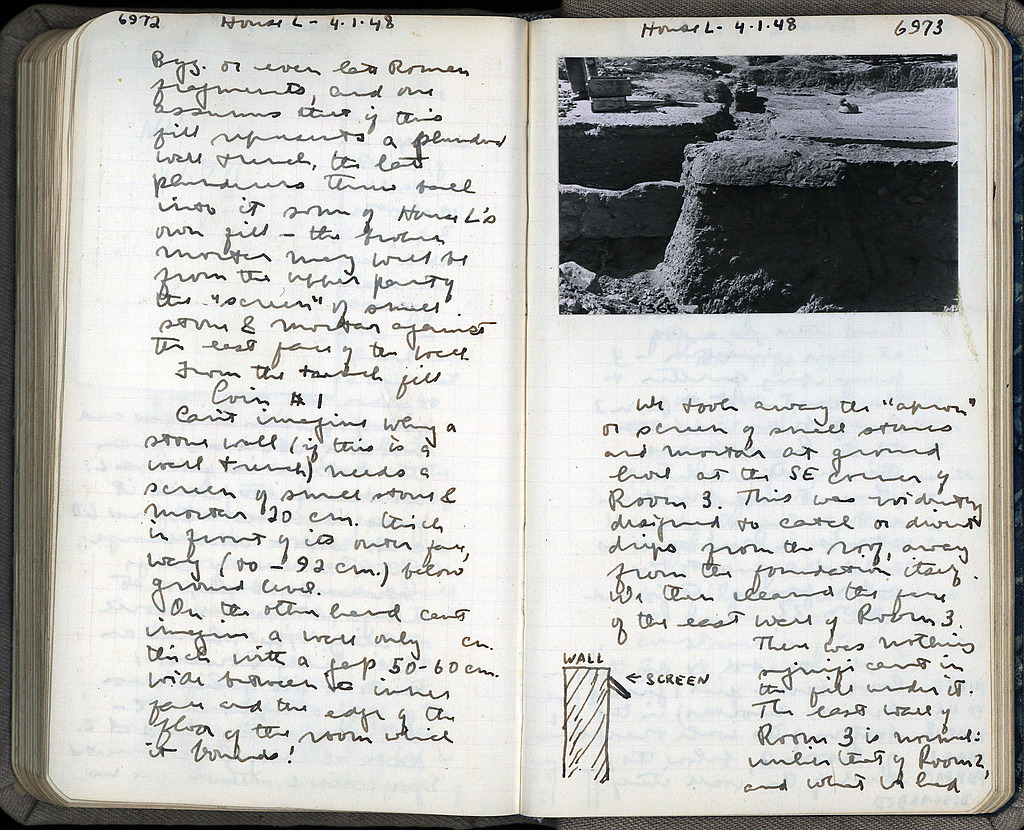 6972 House L - 4.1.48
Byz. or even late Roman
fragments, and one
assumes that if this
fill represents a plundered
wall trench, the late
plunderers threw back
into it some of House L's
own fill - the broken
mortar may well be
from the upper part of
the "screen" of small
stone & mortar against
the east face of the wall
From the trench fill
Coin #1
Can't imagine why a
stone wall (if this is a
wall trench) needs a
screen of small stone &
mortar 20 cm. thick
in front of its outer face,
way (to - 92 cm.) below
ground level.
On the other hand can't
imagine a wall only cm.
thick with a gap 50-60 cm.
wide between its inner
face and the edge of the
floor of the room which
it bounds!
House L - 4.1.48 6973
We took away the "apron"
or screen of small stones
and mortar at ground
level at the SE corner of
Room 3. This was evidently
designed to catch or divert
drips from the roof, away
from the foundation itself.
We then cleaned the face
of the east wall of Room 3.
There was nothing
significant in
the fill under it.
The east wall of
Room 3 is normal:
unlike that of Room 2,
and what we had
WALL
← SCREEN